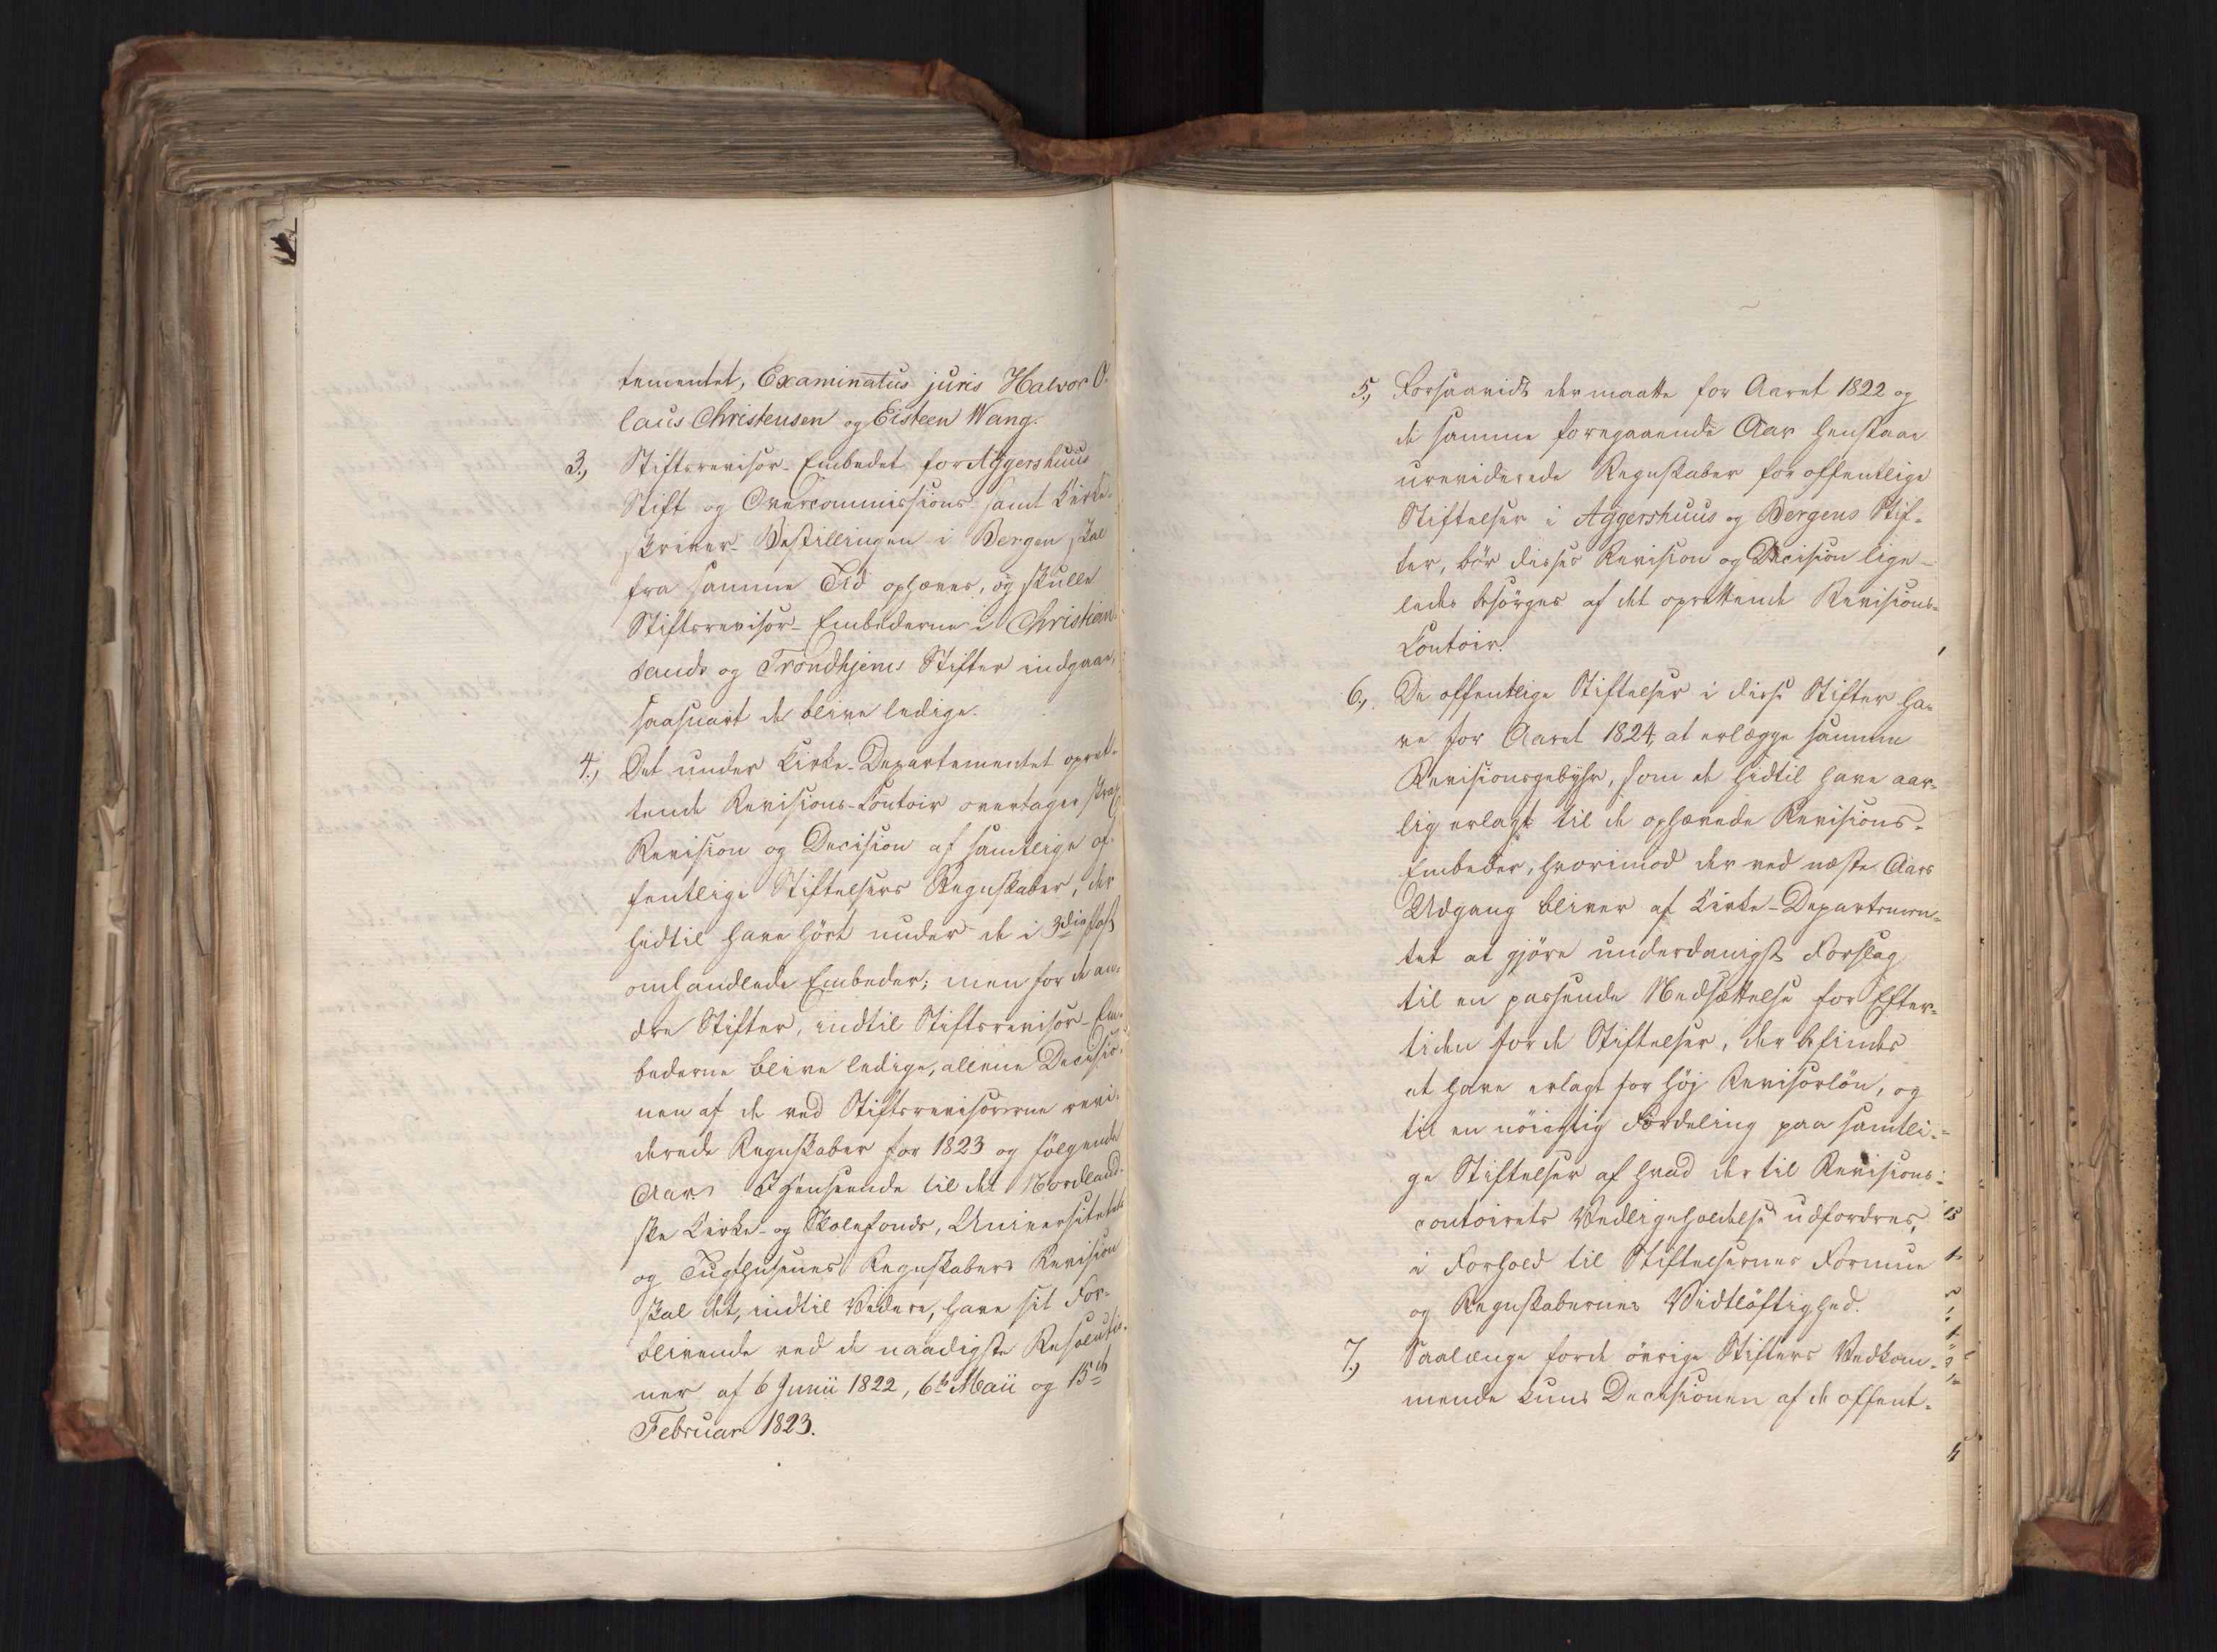 tementet, Examinatus juris Halvor O-
laus Christensen og Eisteen Wang.
3., Stiftsrevisor-Embedet for Aggershuus
Stift og Overcommissions- samt Kirke-
skriver-Bestillingen i Bergen skal
fra samme Tid ophæves, og skulle
Stiftsrevisor-Embederne i Christian-
sands og Trondhjems Stifter indgaae,
saasnart de blive ledige.
4., Det under Kirke-Departementet opret-
tende Revisions-Contoir overtager strax
Revision og Decision af samtlige of-
fentlige Stiftelsers Regnskaber, der
hidtil have hört under de i 3die Post
omhandlede Embeder; men for de an-
dre Stifter, indtil Stiftsrevisor-Em-
bederne blive ledige, allene Decisio-
nen af de ved Stiftsrevisorerne revi-
derede Regnskaber for 1823 og fölgende
Aar. I Henseende til det Nordland-
ske Kirke- og Skolefonds, Universitetets
og Tugthusenes Regnskabers Revision
skal det, indtil Videre, have sit For-
blivende ved de naadigste Resolutio-
ner af 6 Junii 1822, 6te Maii og 15de
Februar 1823.
5., Forsaavidt der maatte for Aaret 1822 og
de samme foregaaende Aar henstaae
ureviderede Regnskaber for offentlige
Stiftelser i Aggershuus og Bergens Stif-
ter, bör disses Revision og Decision lige-
ledes besörges af det oprettende Revisions-
Contoir.
6., De offentlige Stiftelser i disse Stifter ha-
ve for Aaret 1824, at erlægge samme
Revisionsgebyhr, som de hidtil have aar-
lig erlagt til de ophævede Revisions-
Embeder, hvorimod der ved næste Aars
Udgang bliver af Kirke-Departemen-
tet at gjöre underdanigst Forslag
til en passende Nedsættelse for Efter-
tiden for de Stiftelser, der befindes
at have erlagt for höj Revisorlön, og
til en nöiagtig Fordeling paa samtli-
ge Stiftelser af hvad der til Revisions-
contoirets Vedligeholdelse udfordres,
i Forhold til Stiftelsernes Formue
og Regnskabernes Vidtlöftighed.
7., Saalænge for de övrige Stifters Vedkom-
mende kuns Decisionen af de offent-